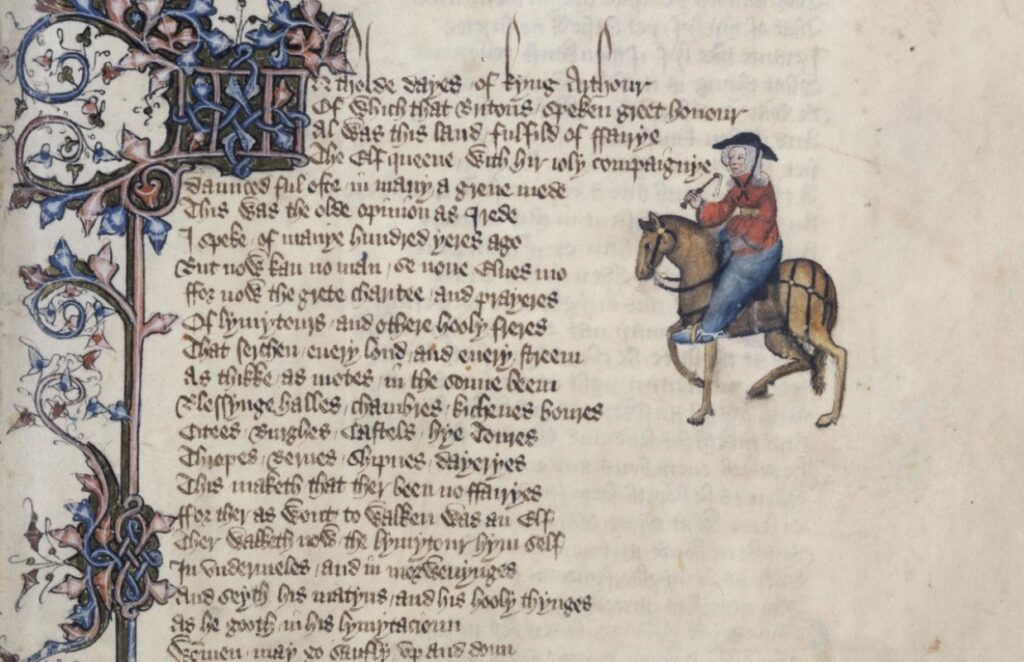 IN tholde dayes / of kyng Arthour
Of which that Britouns / speken greet honour
Al was this land / fulfild of ffairye
The Elf queene / with hir ioly compaignye
Daunced ful ofte / in many a grene mede
This was the olde opinion as I rede
I speke / of manye hundred yeres ago
But now kan no man / se none Elues mo
ffor now the grete charitee / and prayeres
Of lymytours / and othere hooly freres
That serchen / euery lond / and euery streem
As thikke / as motes / in the sonne beem
Blessynge halles / chambres / kichenes boures
Citees / Burghes / Castels / hye Toures
Thropes / Bernes / Shipnes / dayeryes
This maketh that ther been no ffairyes
ffor ther as wont to walken was an Elf
Ther walketh now / the lymytour hym self
In vndermeles / and in morwenynges
And seyth his matyns / and his hooly thynges
As he gooth / in his lymytacioun
Wommen may go saufly vp and doun